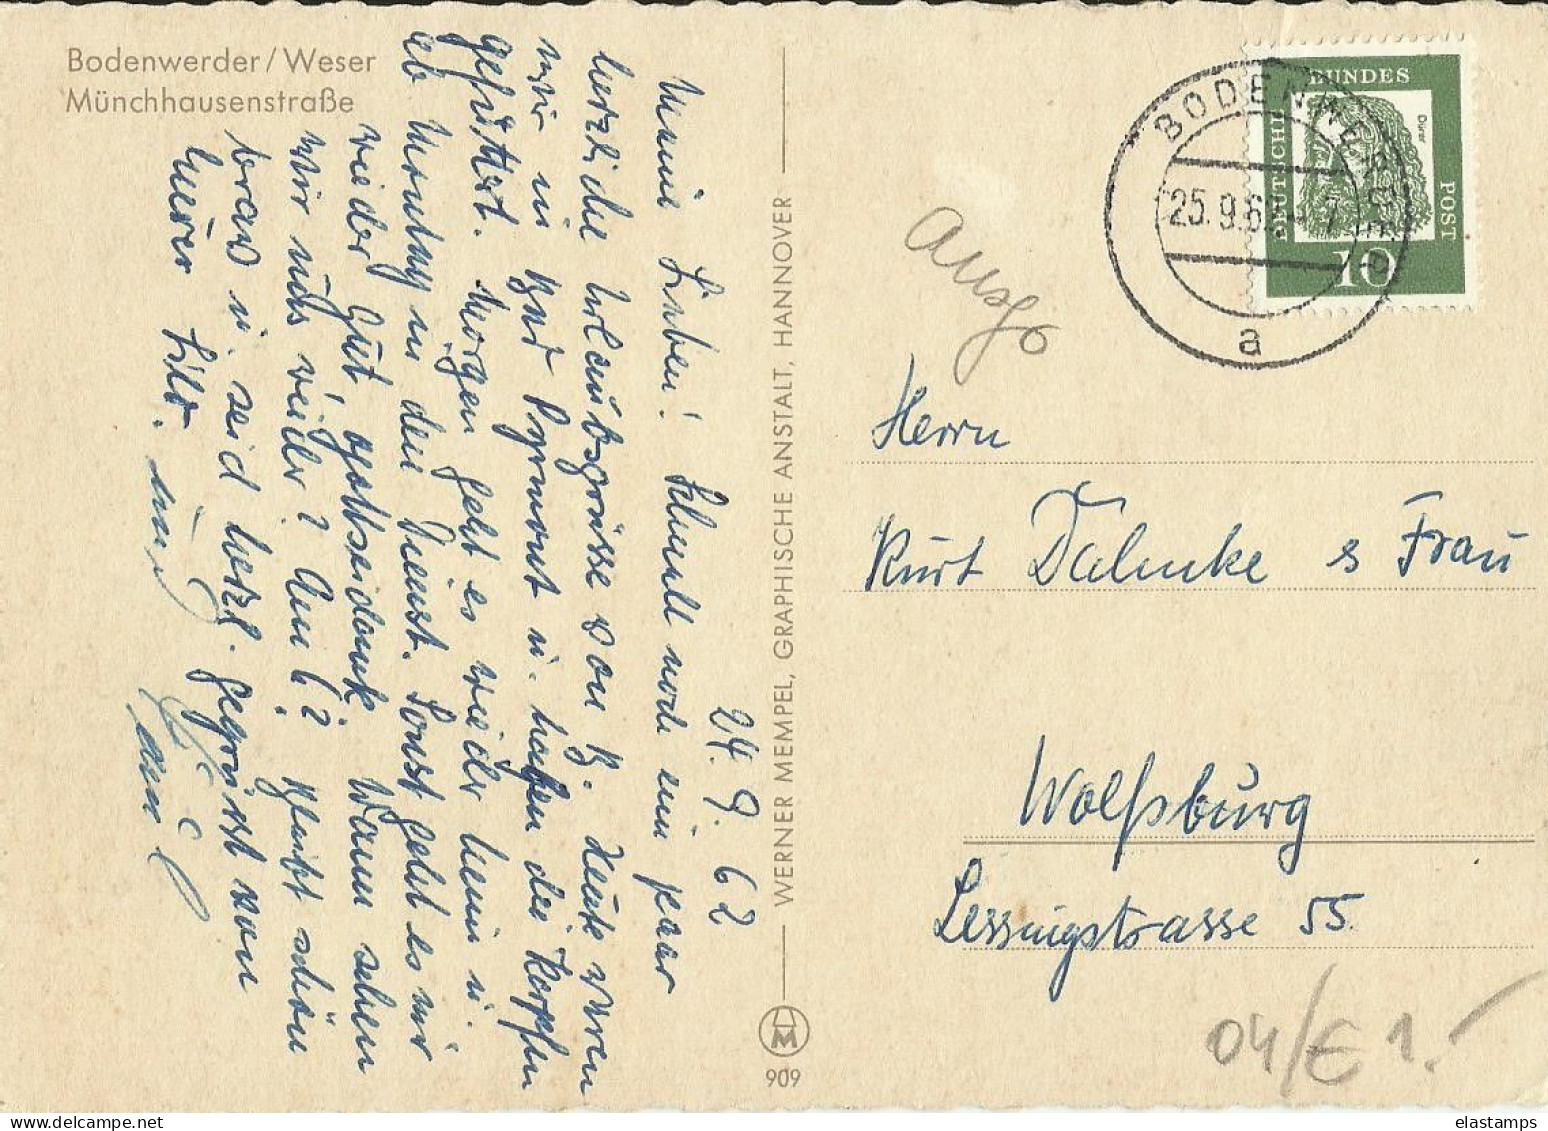 Bodenwerder/Weser
Münchhausenstraße
24. 9. 62
Meine Lieben! Schnell noch ein paar
herzliche Urlaubsgrüsse von B. Heute waren
wir in Bad Pyrmont u. haben die Karpfen
gefüttert. Morgen geht es wieder heim u.
ab Montag in den Dienst. Sonst geht es mir
wieder gut, gottseidank. Wann sehen
wir uns wieder? Am 6? Bleibt schön
brav u. seid herzl. gegrüsst von
Eurer Lilo.
und
WERNER MEMPEL, GRAPHISCHE ANSTALT, HANNOVER
909
BODENWERDER
25.9.62
a
DEUTSCHE
BUNDES
POST
Dürer
10
Herrn
Kurt Dalmke & Frau
Wolfsburg
Lessingstrasse 55.
04/€ 1.-